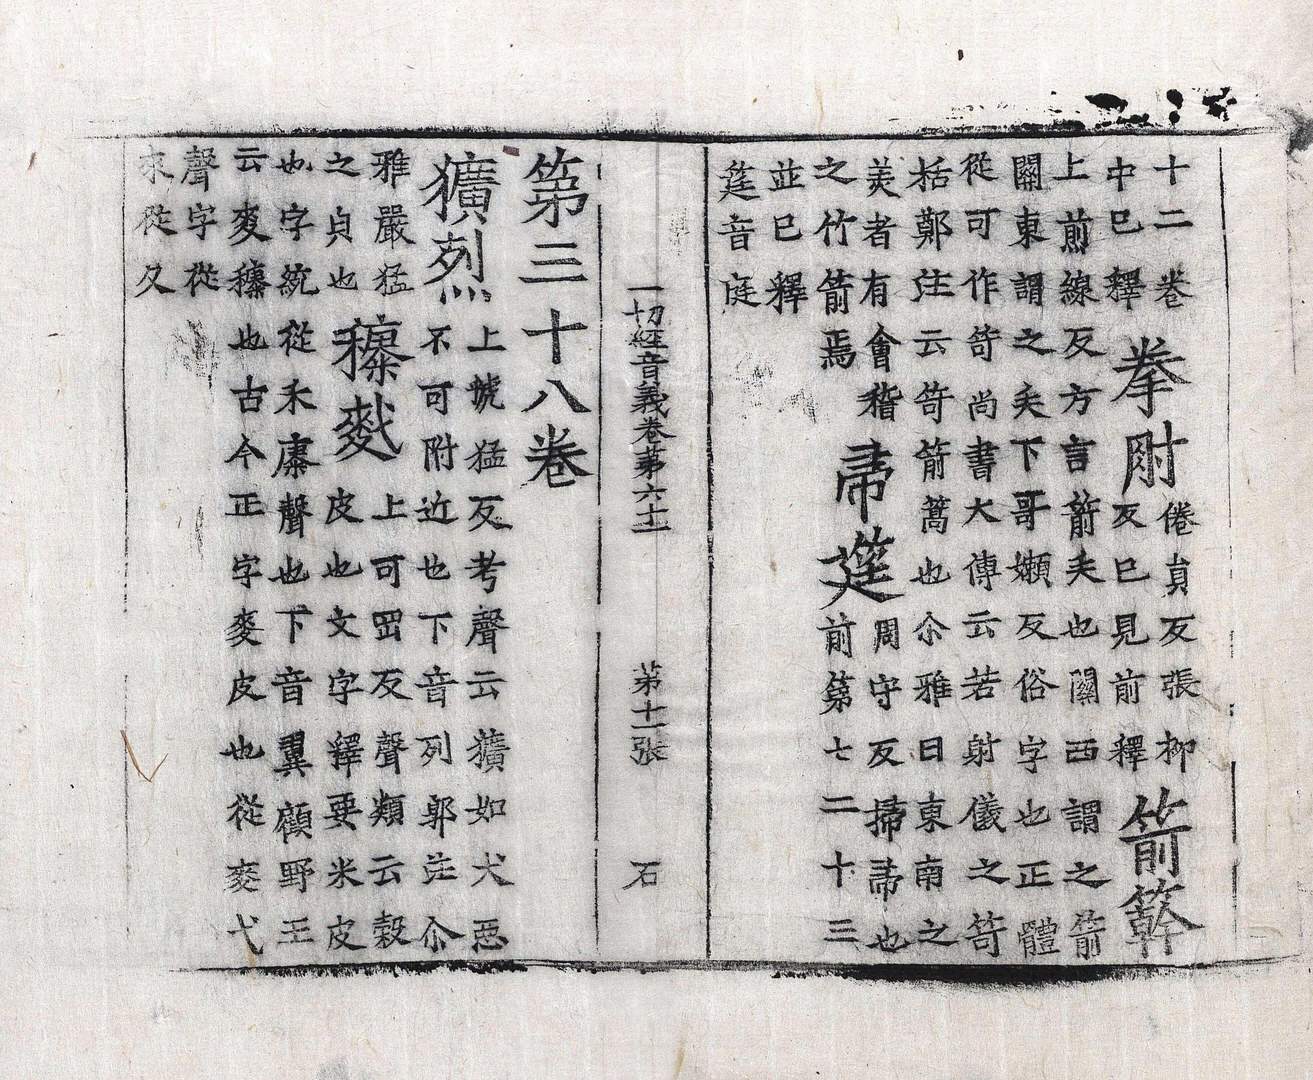 十二卷
中巳釋
拳肘
倦負反張柳
反巳見前釋
箭簳
上煎線反方言箭矢也關西謂之箭
關東謂之矢下哥嬾反俗字也正體
從可作笴尚書大傳云若射儀之笴
栝鄭注云笴箭蒿也尒雅曰東南之
美者有會稽
之竹箭焉
帚莛
周守反掃帚也
前第七二十三
並巳釋
莛音庭
一切經音義卷苐六十一
苐十一張
石
第三十八卷
獷烈
上號猛反考聲云獷如犬惡
不可附近也下音列郭注尒
雅嚴猛
之貞也
穅𪌮
上可罡反聲類云穀
皮也文字釋要米皮
也字統從禾康聲也下音翼顧野王
云麦穅也古今正字麥皮也從麥弋
聲字從
來從夂